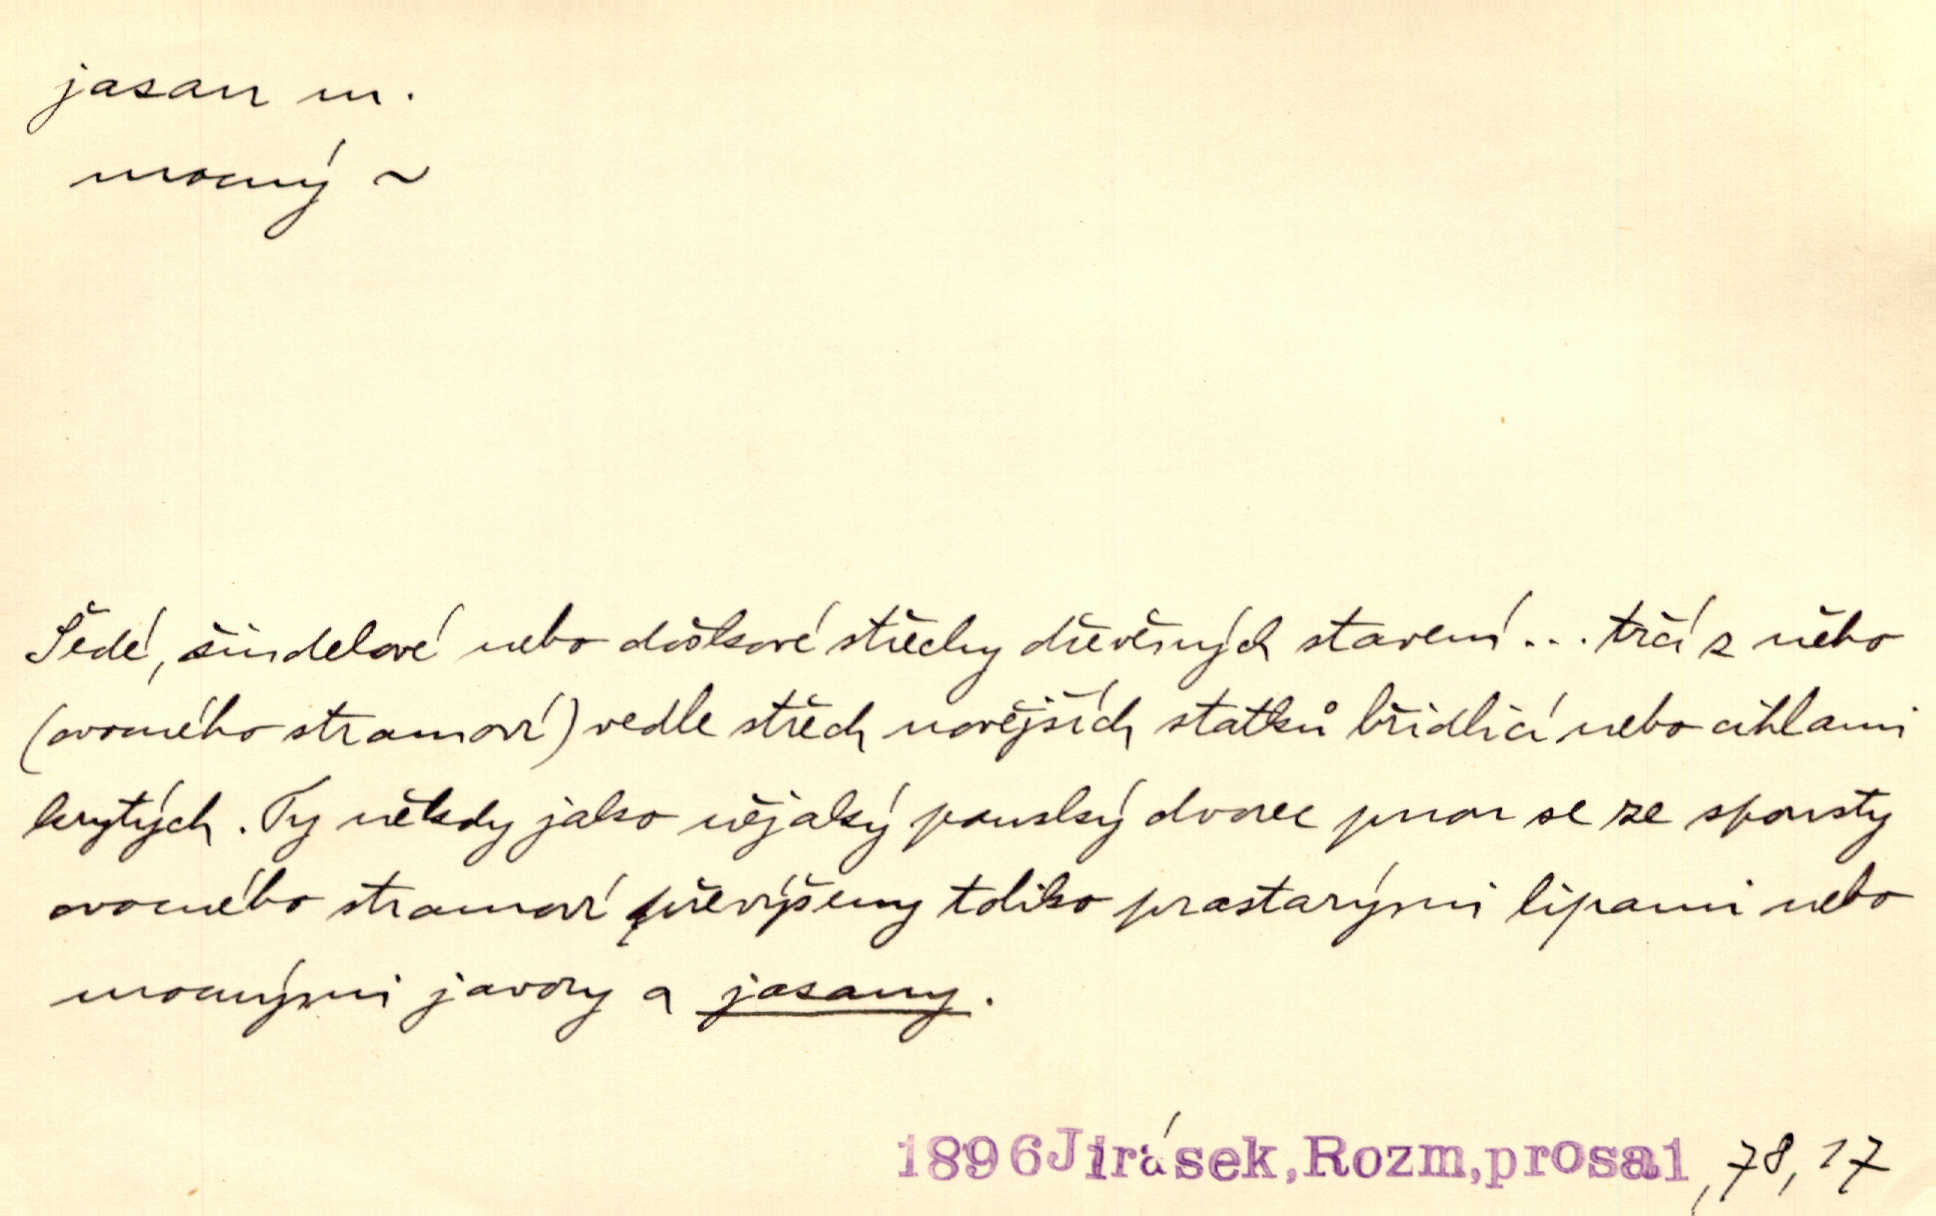 jasan m.
mocný ~
Šedé, šindelové nebo doškové střechy dřevěných stavení ... trčí z něho
(ovocného stromoví) vedle střech novějších statků břidlicí nebo cihlami
krytých. Ty někdy jako nějaký panský dvorec pnou se ze spousty
ovocného stromoví převýšeny toliko prastarými lipami nebo
mocnými javory a jasany.
1896 Jirásek, Rozm, prosa1, 78, 17